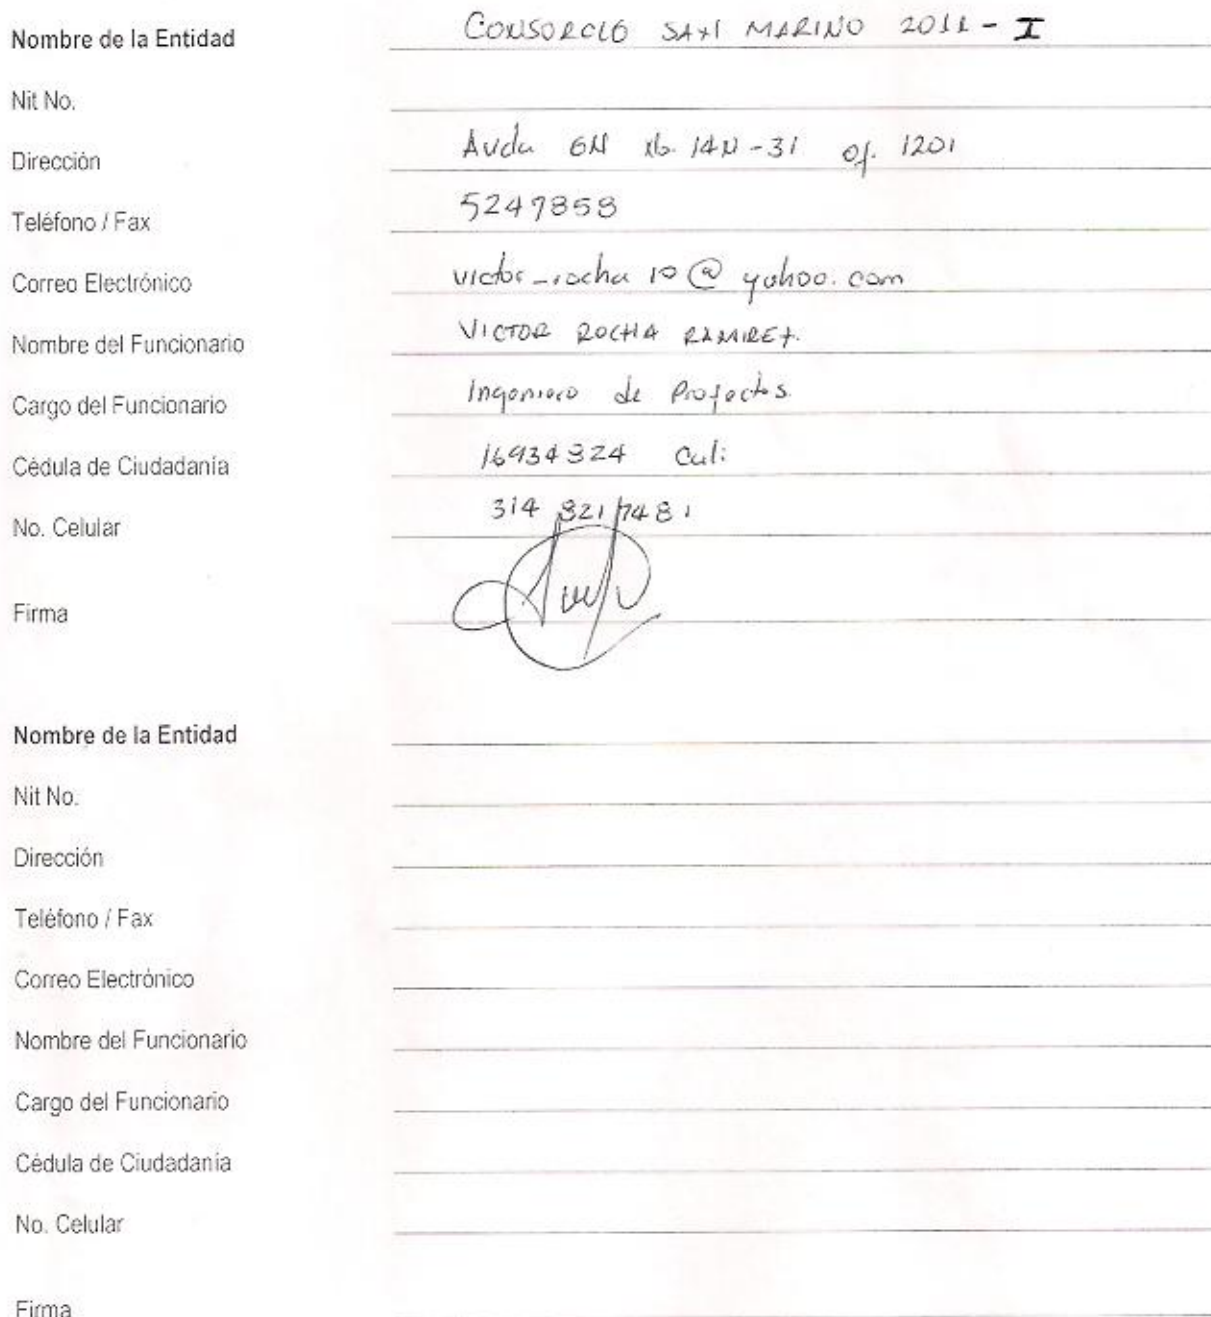 Nombre de la Entidad CONSORCIO SAN MARINO 2011 - I
Nit No.
Dirección Avda 6N No. 14N-31 of. 1201
Teléfono / Fax 5247858
Correo Electrónico victor_rocha10@yahoo.com
Nombre del Funcionario VICTOR ROCHA RAMIREZ.
Cargo del Funcionario Ingeniero de Proyectos
Cédula de Ciudadanía 16934324 Cali
No. Celular 314 8217481
Firma
Nombre de la Entidad
Nit No.
Dirección
Teléfono / Fax
Correo Electrónico
Nombre del Funcionario
Cargo del Funcionario
Cédula de Ciudadanía
No. Celular
Firma